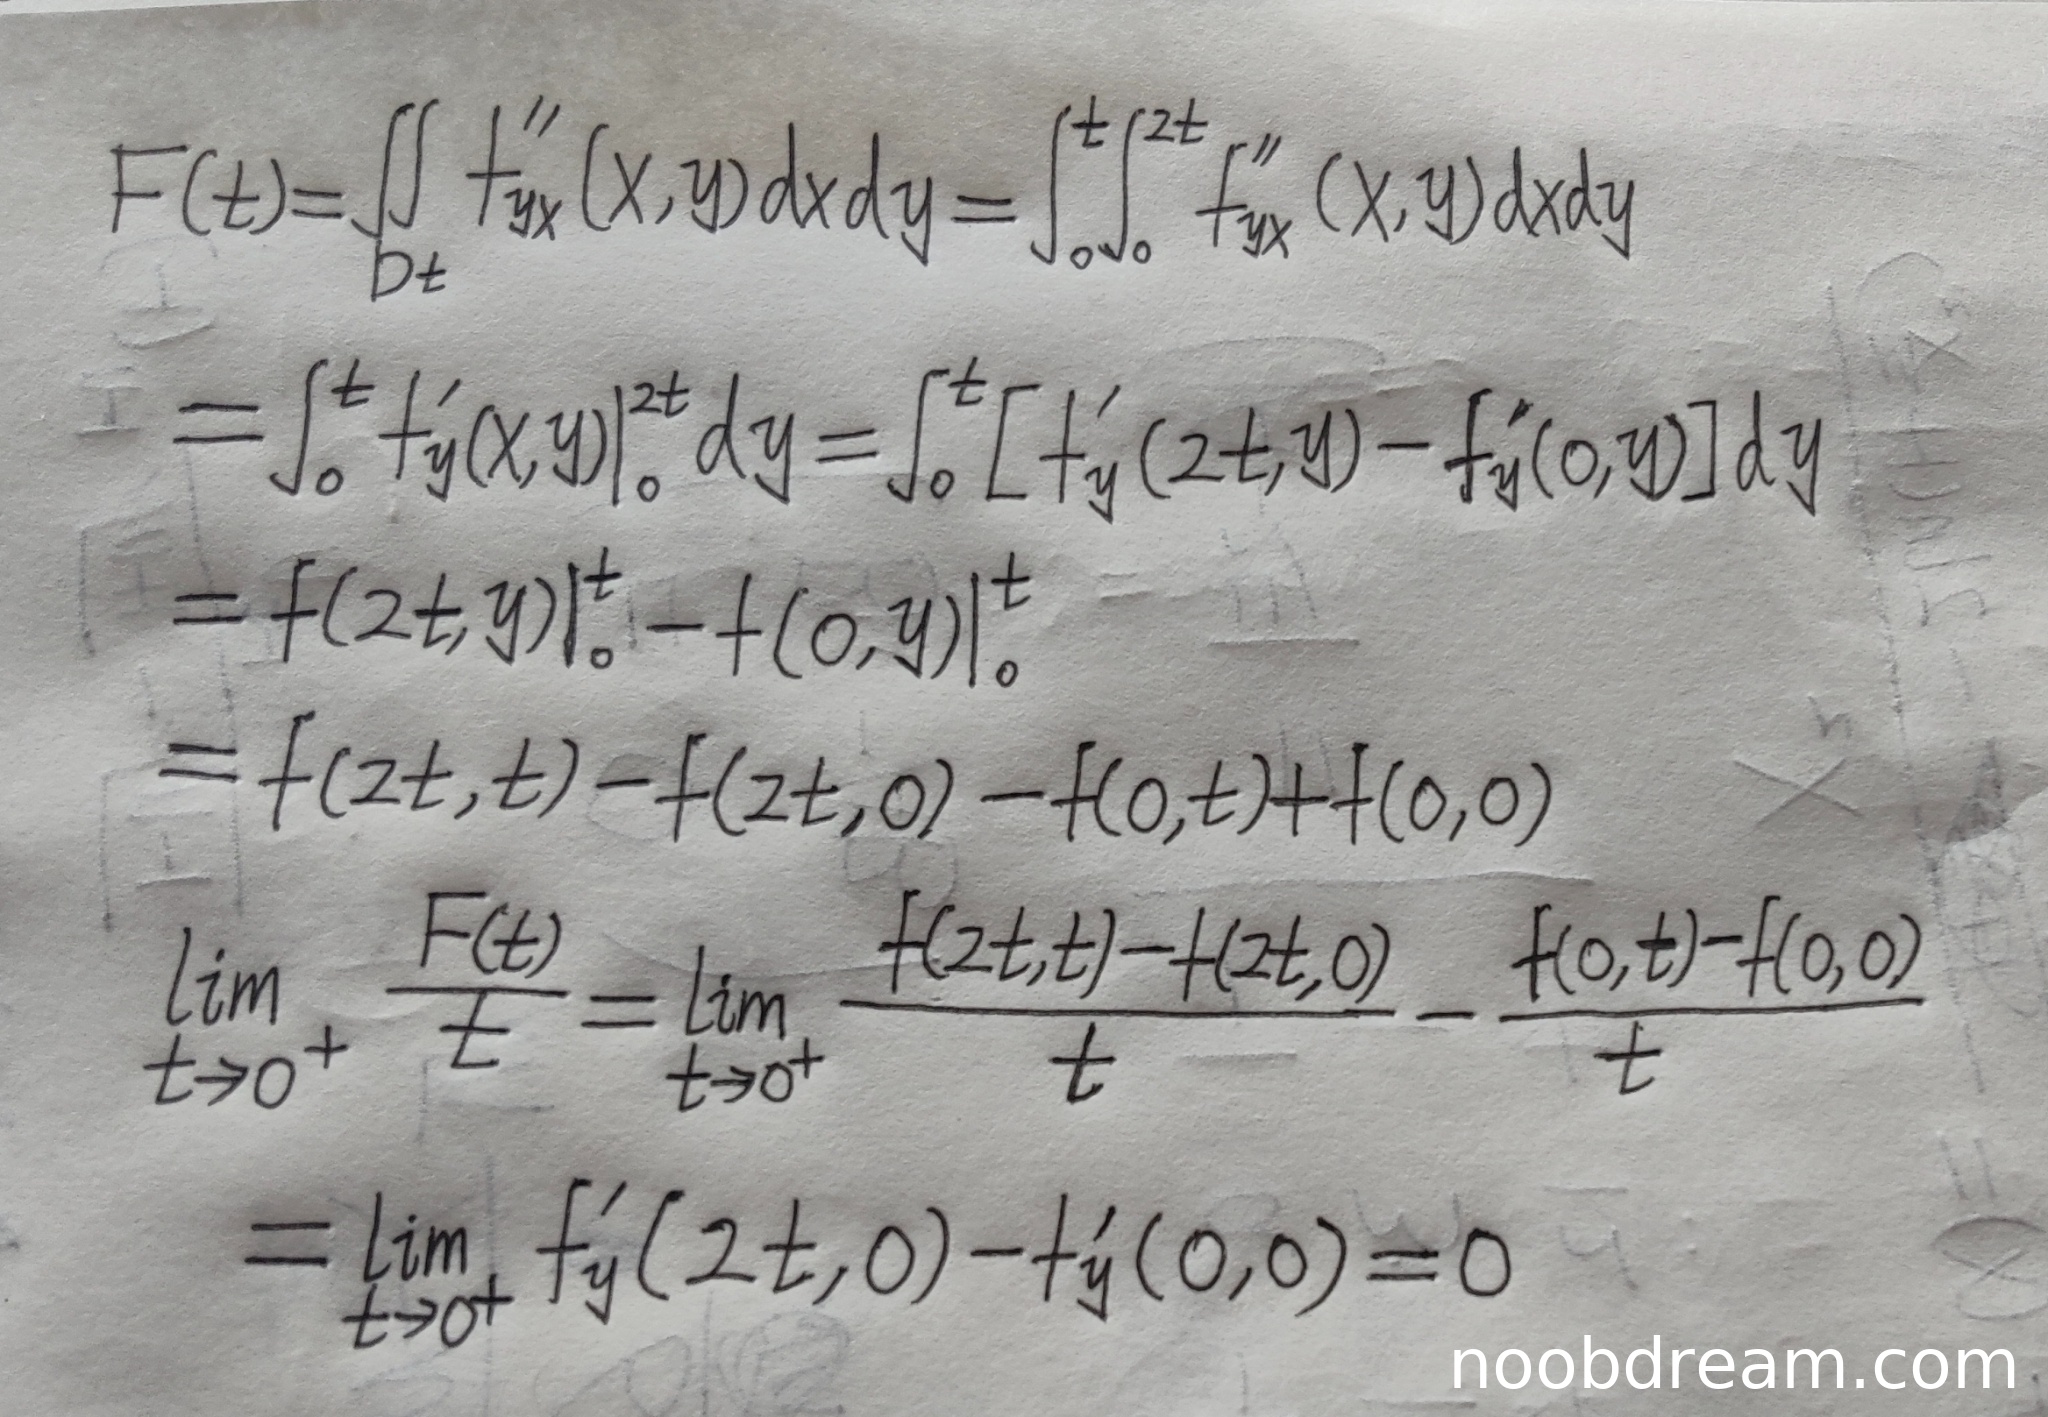 F(t)=∬_{Dt} f''_{yx}(x,y)dxdy=∫_0^t∫_0^{2t} f''_{yx}(x,y)dxdy
=∫_0^t f'_y(x,y)|_0^{2t} dy=∫_0^t[f'_y(2t,y)-f'_y(0,y)]dy
=f(2t,y)|_0^t-f(0,y)|_0^t
=f(2t,t)-f(2t,0)-f(0,t)+f(0,0)
lim_{t→0^+} F(t)/t=lim_{t→0^+} (f(2t,t)-f(2t,0))/t-(f(0,t)-f(0,0))/t
=lim_{t→0^+} f'_y(2t,0)-f'_y(0,0)=0
noobdream.com